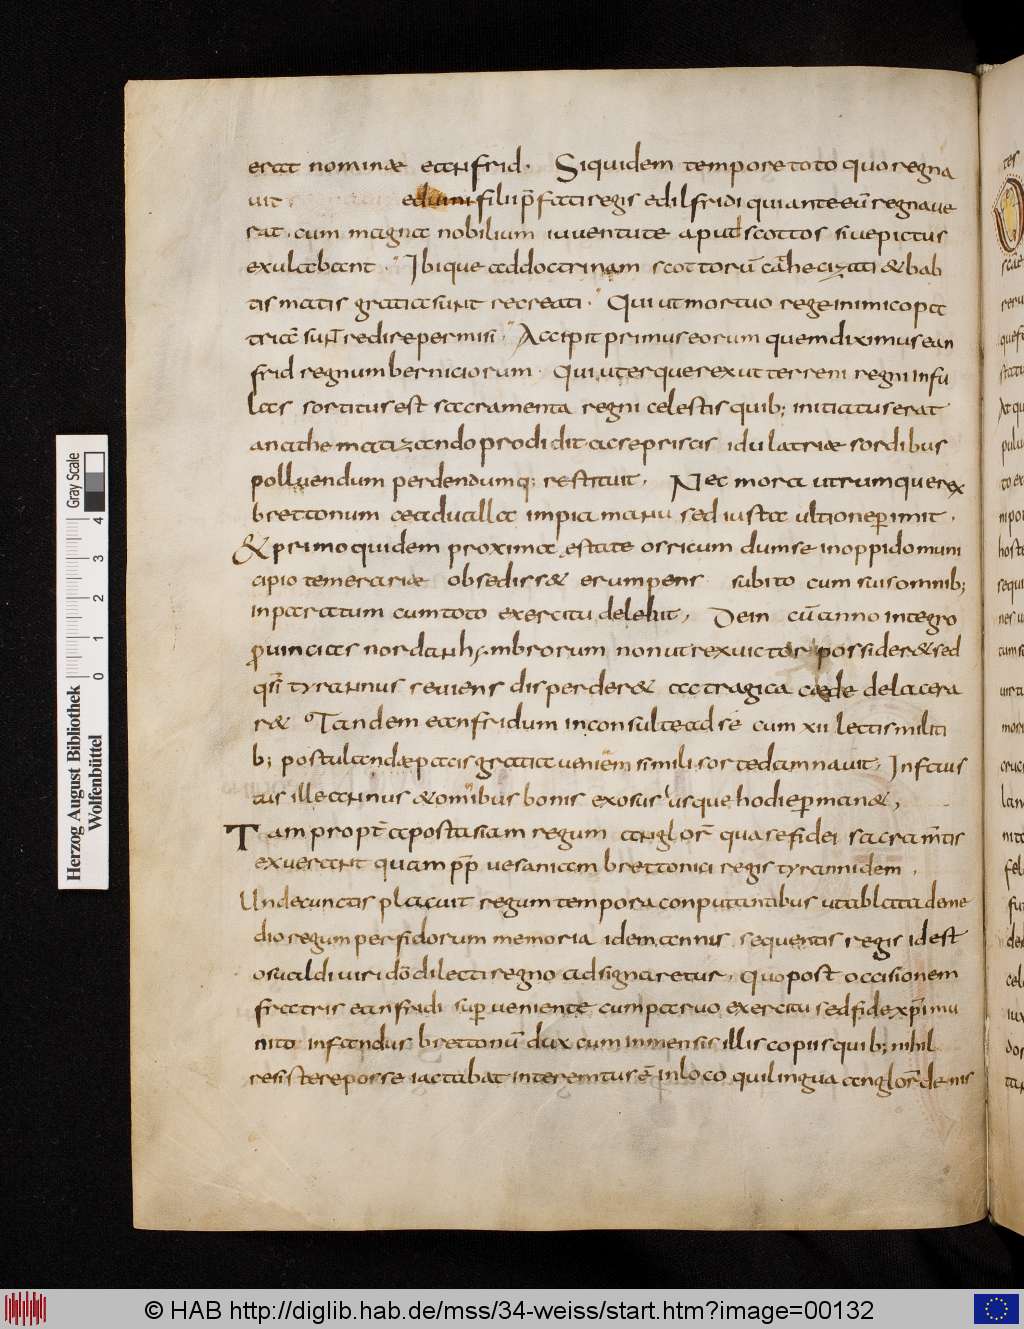 erat nominae eanfrid. Siquidem tempore toto quo regna
uit eduuini filii p̄fati regis edilfridi qui ante eū regnaue
rat. cum magna nobilium iuuentute apud scottos siue pictus
exulabant. Ibique ad doctrinam scottorū cathecizati & bab
tismatis gratia sunt recreati. Qui ut mortuo rege inimico pa
triā sunt redire permisi. Accipit primus eorum quem diximus ean
frid regnum berniciorum. Qui uterque rex ut terreni regni infu
las sortitus est sacramenta regni celestis quib; initiatus erat
anathematizando prodidit ac se priscis idulatriae sordibus
polluendum perdendumq; restituit. Nec mora utrumque rex
brettonum ceadualla impia manu sed iusta ultione perimit.
& primo quidem proxima estate osricum dum se in oppido muni
cipio temerariae obsediss& erumpens subito cum suis omnib;
inparatum cum toto exercitu delebit, Dein cū anno integro
prouincias nordanhymbrorum non ut rex uictor possider& sed
qsī tyrannus seuiens disperder& ac tragica caede delacera
r& Tandem eanfridum inconsulte ad se cum xii lectis militi
b; postulandae pacis gratia ueniēm simili sorte damnauit. Infaus
tus ille annus & omnibus bonis exosus usque hodie perman&,
Tam propt̄ apostasiam regum anglor̄ qua se fidei sacram̄tis
exuerant quam pp̄ uesaniam brettonici regis tyrannidem.
Unde cunctis placuit regum tempora conputantibus ut ablata de me
dio regum perfidorum memoria idem annus sequentis regis id est
osualdi uiri dō dilecti regno adsignaretur, quo post occisionem
fratris eanfridi superueniente cum paruo exercitu sed fide xp̄i mu
nito infandus brettonū dux cum inmensis illis copiis quib; nihil
resistere posse iactabat interemtus ē in loco qui lingua anglor̄ denis
Herzog August Bibliothek
Wolfenbüttel
Gray Scale
0 1 2 3 4
© HAB http://diglib.hab.de/mss/34-weiss/start.htm?image=00132